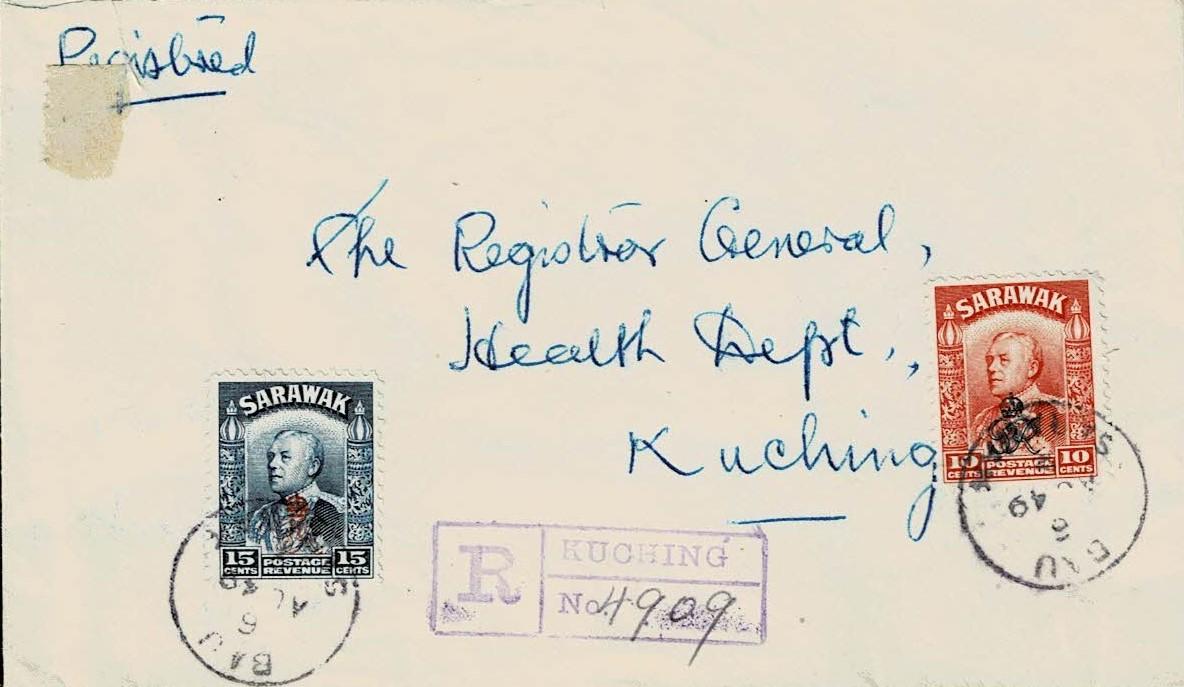 Registered
The Registrar General,
Health Dept.,
Kuching
SARAWAK
10 CENTS POSTAGE REVENUE 10 CENTS
SARAWAK
15 CENTS POSTAGE REVENUE 15 CENTS
R KUCHING
No 4909
BAU
6 AU 49
BAU
6 AU